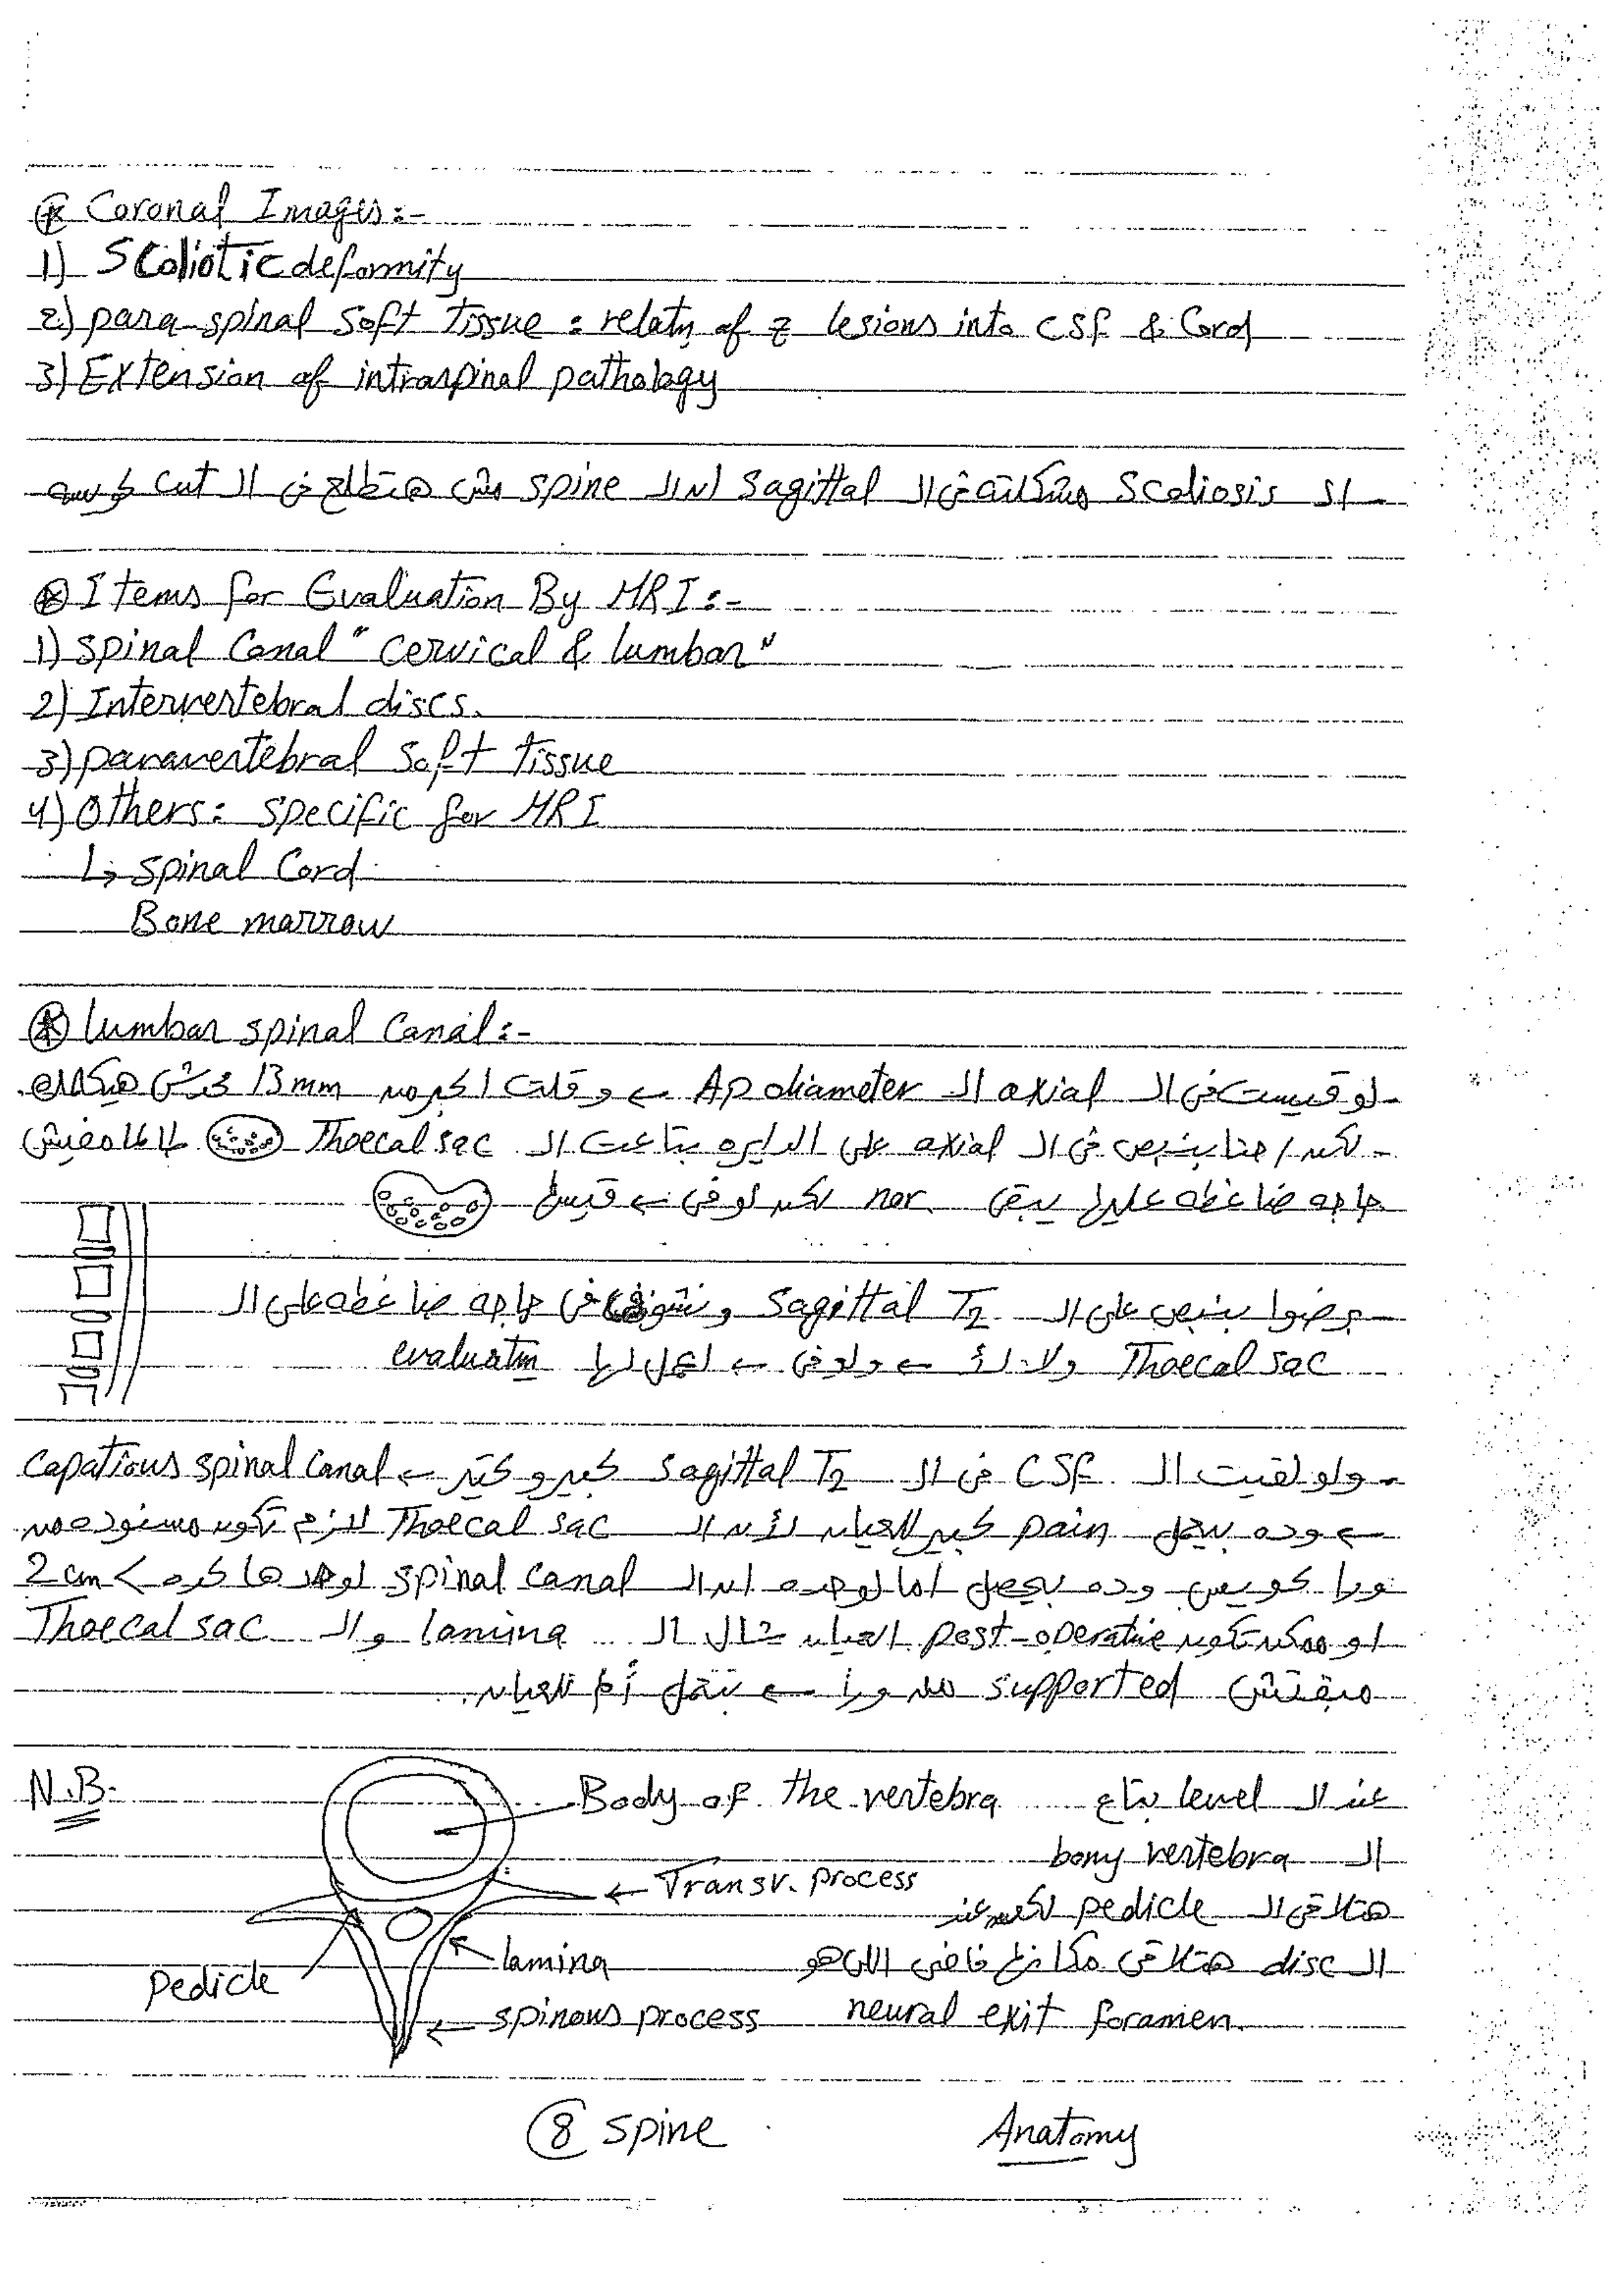 ⊛ Coronal Images:-
1) Scoliotic deformity
2) para spinal soft tissue : relatn of z lesions into CSF & Cord
3) Extension of intraspinal pathology
- الـ Scoliosis مشكلته في الـ Sagittal ان الـ spine مش هتطلع في الـ cut كويسه
⊛ Items for Evaluation By MRI:-
1) spinal Canal " cervical & lumbar "
2) Intervertebral discs.
3) paravertebral soft tissue
4) Others: specific for MRI
↳ spinal Cord
Bone marrow
⊛ lumbar spinal Canal:-
- لو قيست في الـ axial الـ AP diameter ← و قلت اكبر من 13 mm محدش هيكلمك
- لكن احنا بنبص في الـ axial على الدايره بتاعت الـ Thoecal sac طالما مفيش
حاجه ضاغطه عليها يبقى nor. لكن لو في ← قيس
- برضوا بنبص على الـ Sagittal T2 ونشوف في حاجه ضاغطه على الـ
Thoecal sac ولا لأ ← ولو في ← اعمل لها evaluatn
- ولو لقيت الـ CSF في الـ Sagittal T2 كبير و كتير ← Capatious spinal Canal
← وده بيعمل pain كبير للعيان لأن الـ Thoecal sac لازم تكون مسنوده من
ورا كويس وده بيحصل اما لوحده ان الـ spinal canal لوحدها كده > 2 cm
او ممكن تكون post-operative العيان شال الـ lamina والـ Thoecal sac
مبقتش supported من ورا ← بتعمل ألم للعيان.
N.B.
Body of the vertebra
عند الـ level بتاع
الـ bony vertebra
← Transv. process
هتلاقي الـ pedicle لكن عند
lamina
الـ disc هتلاقي مكانها فاضي اللي هو
Pedicle
← spinous process
neural exit foramen.
⑧ Spine
Anatomy